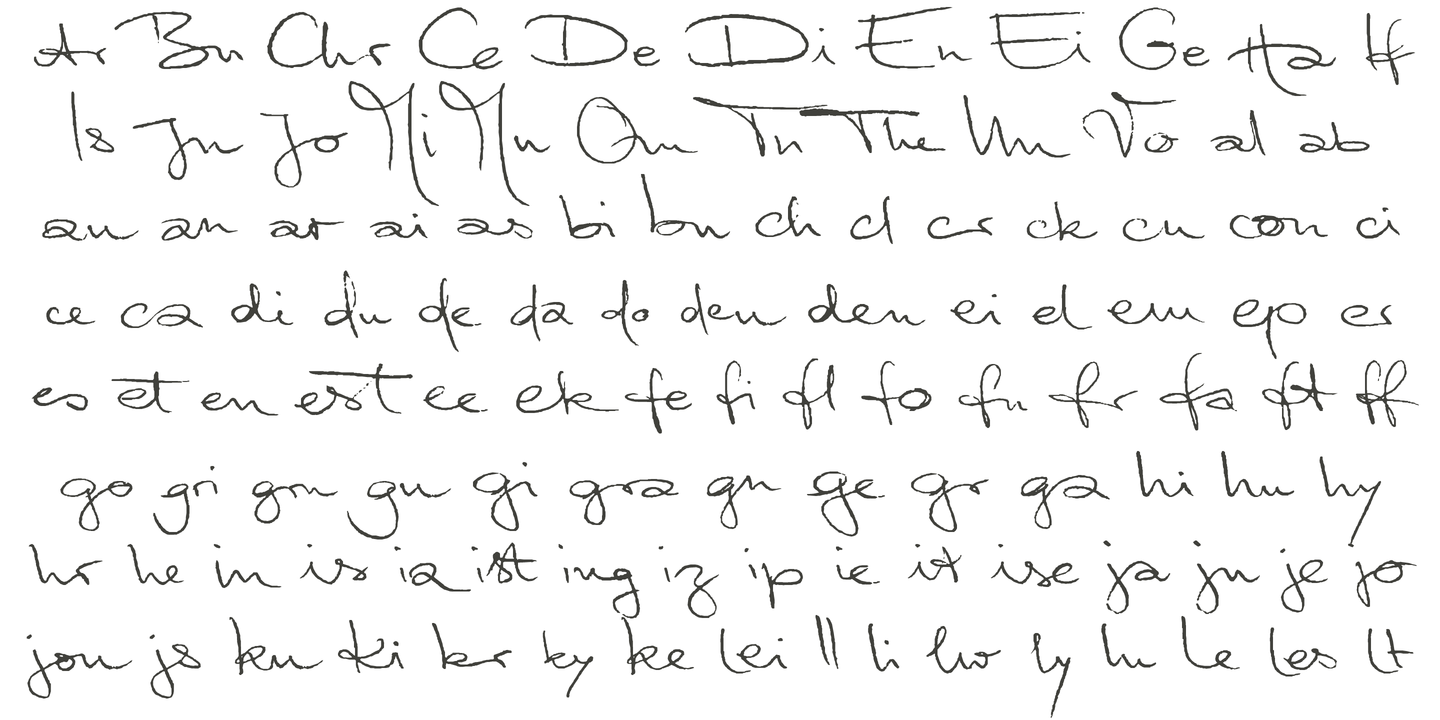 Ar Bu Chr Ce De Di En Ei Ge Ha If
Is Ju Jo Mi Mu Qu Tu The Un Vo al ab
au an ar ai as bi bu ch cl cr ck cu con ci
ce ca di du de da do den den ei el em ep er
es et en est ee ek fe fi fl fo fu fr fa ft ff
go gri gm gu gi gra gn ge gr ga hi hu hy
hr he in is ia ist ing iz ip ie it ise ja ju je jo
jou js ku Ki kr ky ke lei ll li lo ly lu le les lt